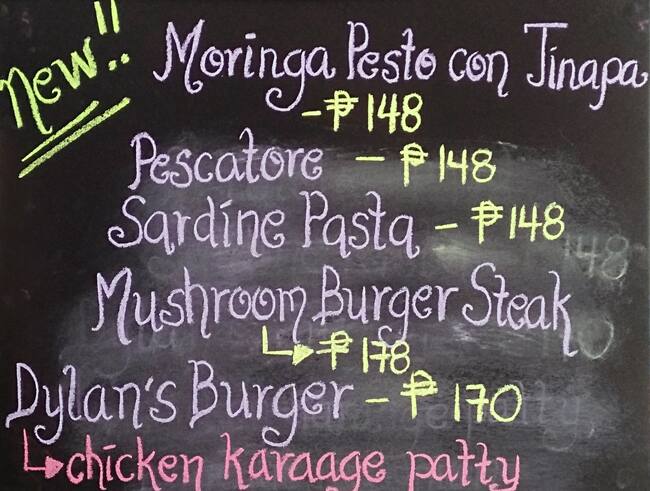 New!! Moringa Pesto con Tinapa
- ₱ 148
Pescatore - ₱ 148
Sardine Pasta - ₱ 148
Mushroom Burger Steak
₱ 178
Dylan's Burger - ₱ 170
chicken karaage patty